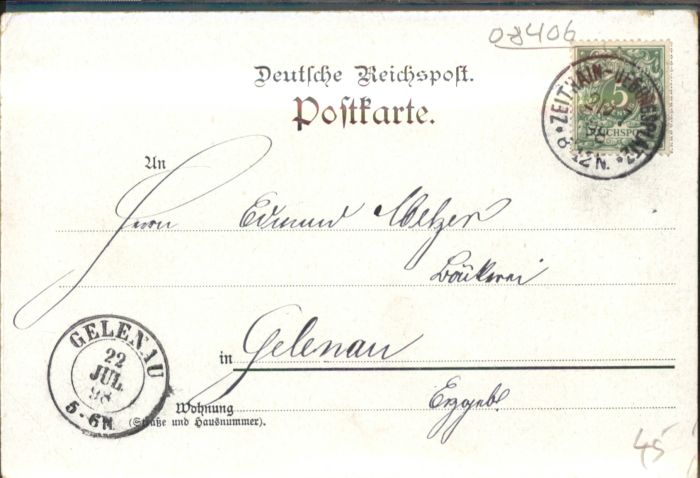 08406
Deutsche Reichspost.
Postkarte.
5
REICHSPOST
ZEITHAIN-UEBUNGSPLATZ
8-12 N.
An
Herrn Edmund Melzer
Bäckerei
in Gelenau
Erzgeb
Wohnung
(Straße und Hausnummer).
GELENAU
22
JUL.
98
5-6N.
45